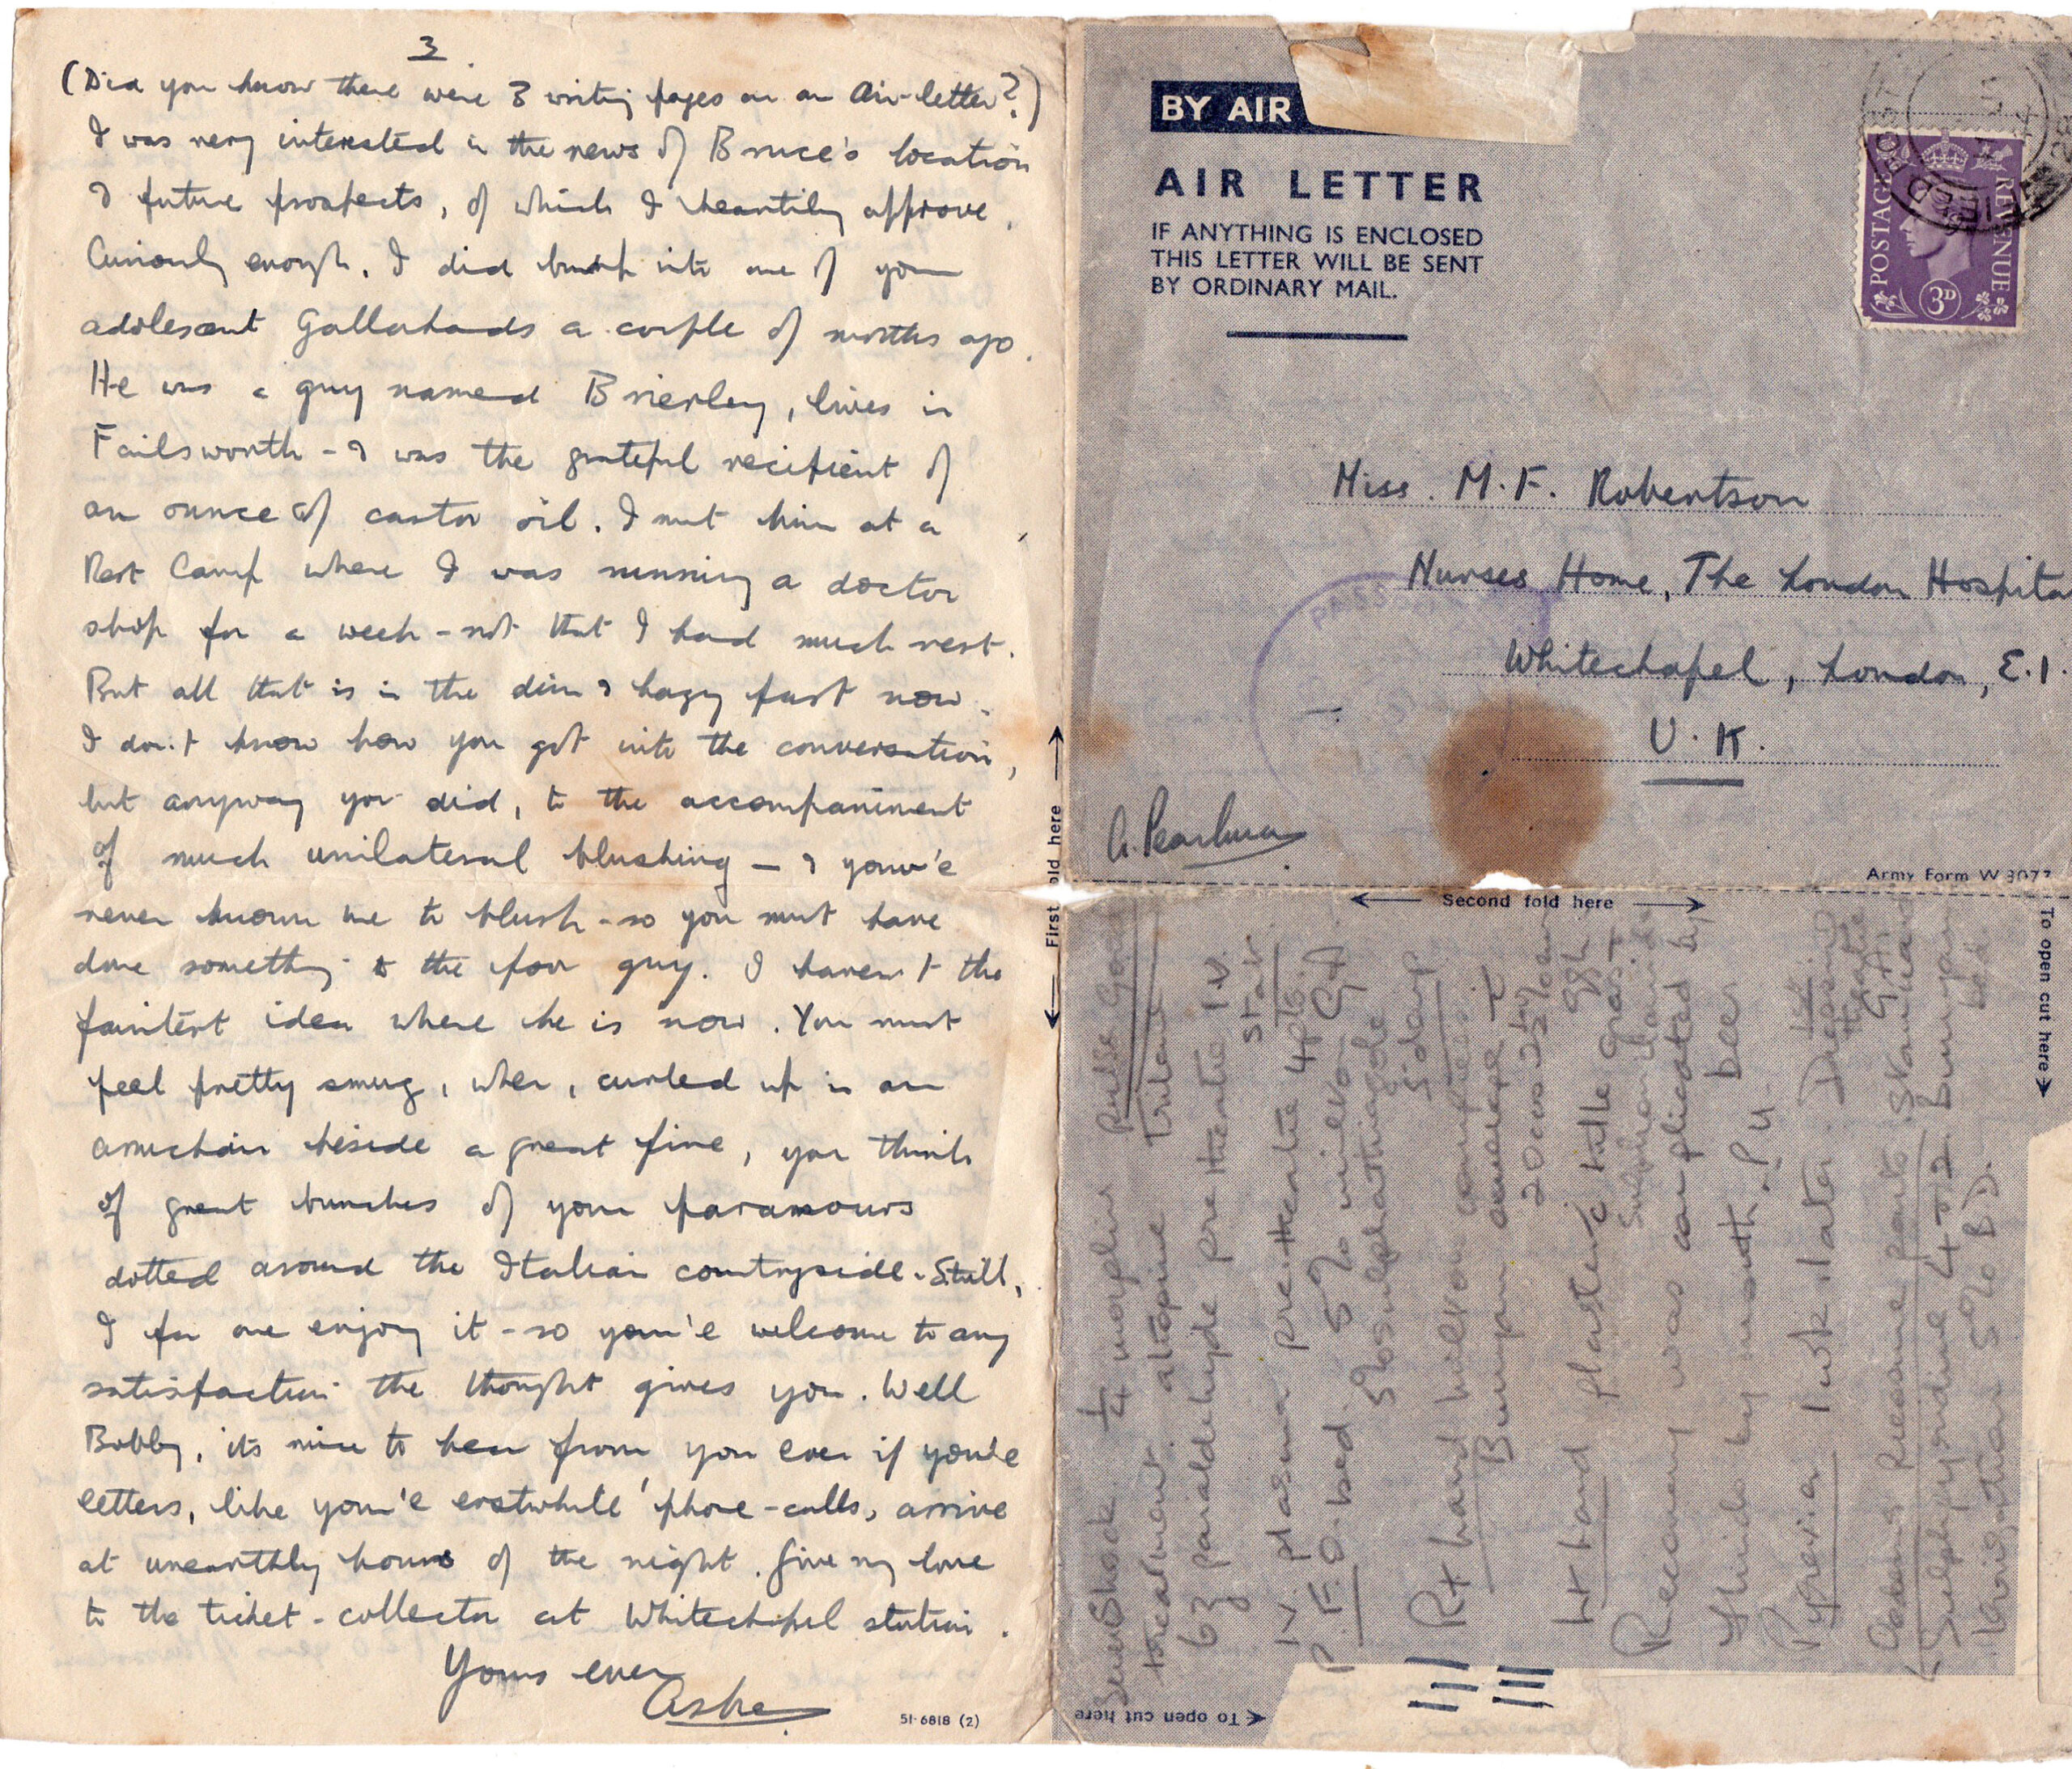 3
(Did you know there were 3 writing pages on an Air-letter?)
I was very interested in the news of Bruce's location
& future prospects, of which I heartily approve.
Curiously enough, I did bump into one of your
adolescent Gallahads a couple of months ago.
He was a guy named Brierley, lives in
Failsworth - & was the grateful recipient of
an ounce of castor oil. I met him at a
Rest Camp where I was running a doctor
shop for a week - not that I had much rest.
But all that is in the dim & hazy past now.
I don't know how you got into the conversation,
but anyway you did, to the accompaniment
of much unilateral blushing - & you've
never known me to blush - so you must have
done something to the poor guy. I haven't the
faintest idea where he is now. You must
feel pretty smug, when, curled up in an
armchair beside a great fire, you think
of great bunches of your paramours
dotted around the Italian countryside. Still,
I for one enjoy it - so you're welcome to any
satisfaction the thought gives you. Well
Bobby, it's nice to hear from you even if your
letters, like your erstwhile 'phone-calls, arrive
at unearthly hours of the night. Give my love
to the ticket-collector at Whitechapel station.
Yours ever
Ashe
51-6818 (2)
First fold here
BY AIR
AIR LETTER
IF ANYTHING IS ENCLOSED
THIS LETTER WILL BE SENT
BY ORDINARY MAIL.
POSTAGE REVENUE
3D
Miss. M. F. Robertson
Nurses Home, The London Hospita
Whitechapel, London, E.1.
U.K.
PASS
A. Pearlman
Army Form W 3077
Second fold here
To open cut here
Shock 1/4 morphia Pulse Good
treatment atropine Trilene
6ʒ paraldehyde pre theatre I.V.
IV. plasma pre theatre 4pts. stat
P.F.O. bed. 5% G.A.
5% sulphathiazole
5 days
Rt hand
Bunyan
Lt hand plastered tulle gras
Recovery was complicated by
fluids by mouth. P.U.
Pyrexia 1 wk later
1st Dressing theatre G.A.
Sulphapyridine
Irrigation 5% B.D.
To open cut here